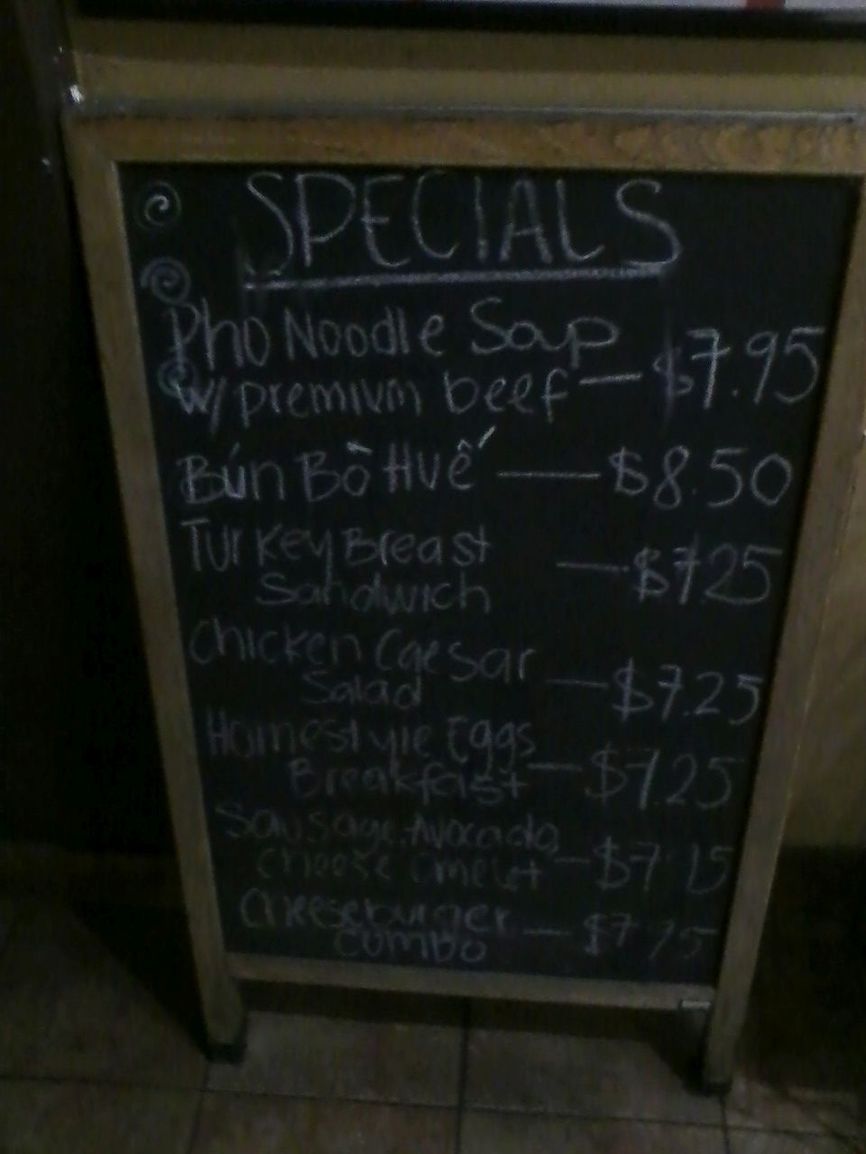 SPECIALS
Pho Noodle Soup
w/premium beef — $7.95
Bún Bò Huế — $8.50
Turkey Breast
Sandwich — $7.25
Chicken Caesar
Salad — $7.25
Homestyle Eggs
Breakfast — $7.25
Sausage, Avocado,
Cheese Omelet —
Cheeseburger
Combo —